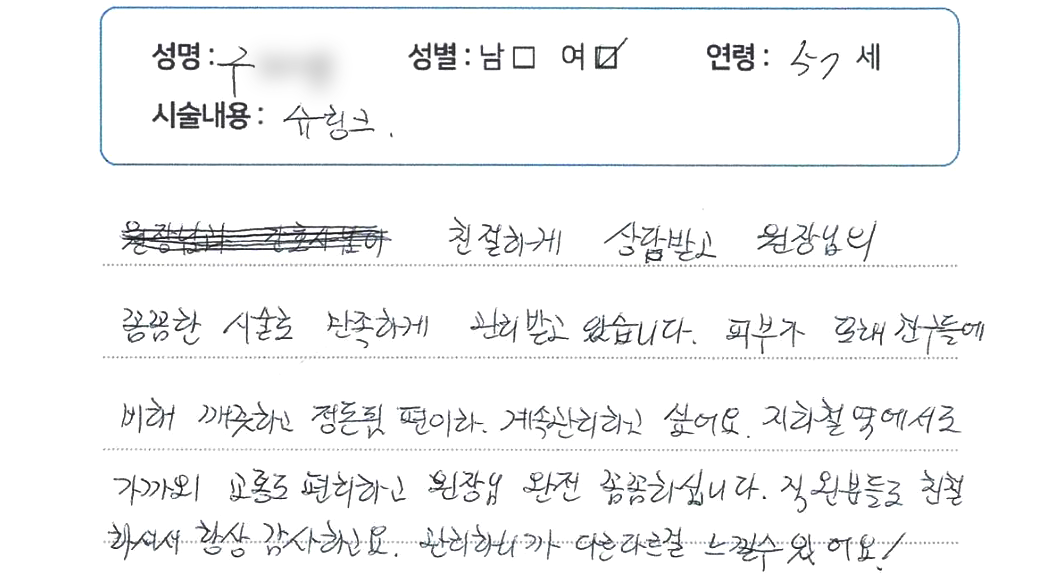 성명: 주 성별: 남 □ 여 ☑ 연령: 57 세
시술내용: 슈링크.
원장님과 간호사분이 친절하게 상담받고 원장님의
꼼꼼한 시술로 만족하게 관리받고 왔습니다. 피부가 또래 친구들에
비해 깨끗하고 정돈된 편이라. 계속관리하고 싶어요. 지하철역에서도
가까워 교통도 편리하고 원장님 완전 꼼꼼하십니다. 직원분들도 친절
하셔서 항상 감사하고요. 관리하니까 다른다른걸 느낄수 있어요!